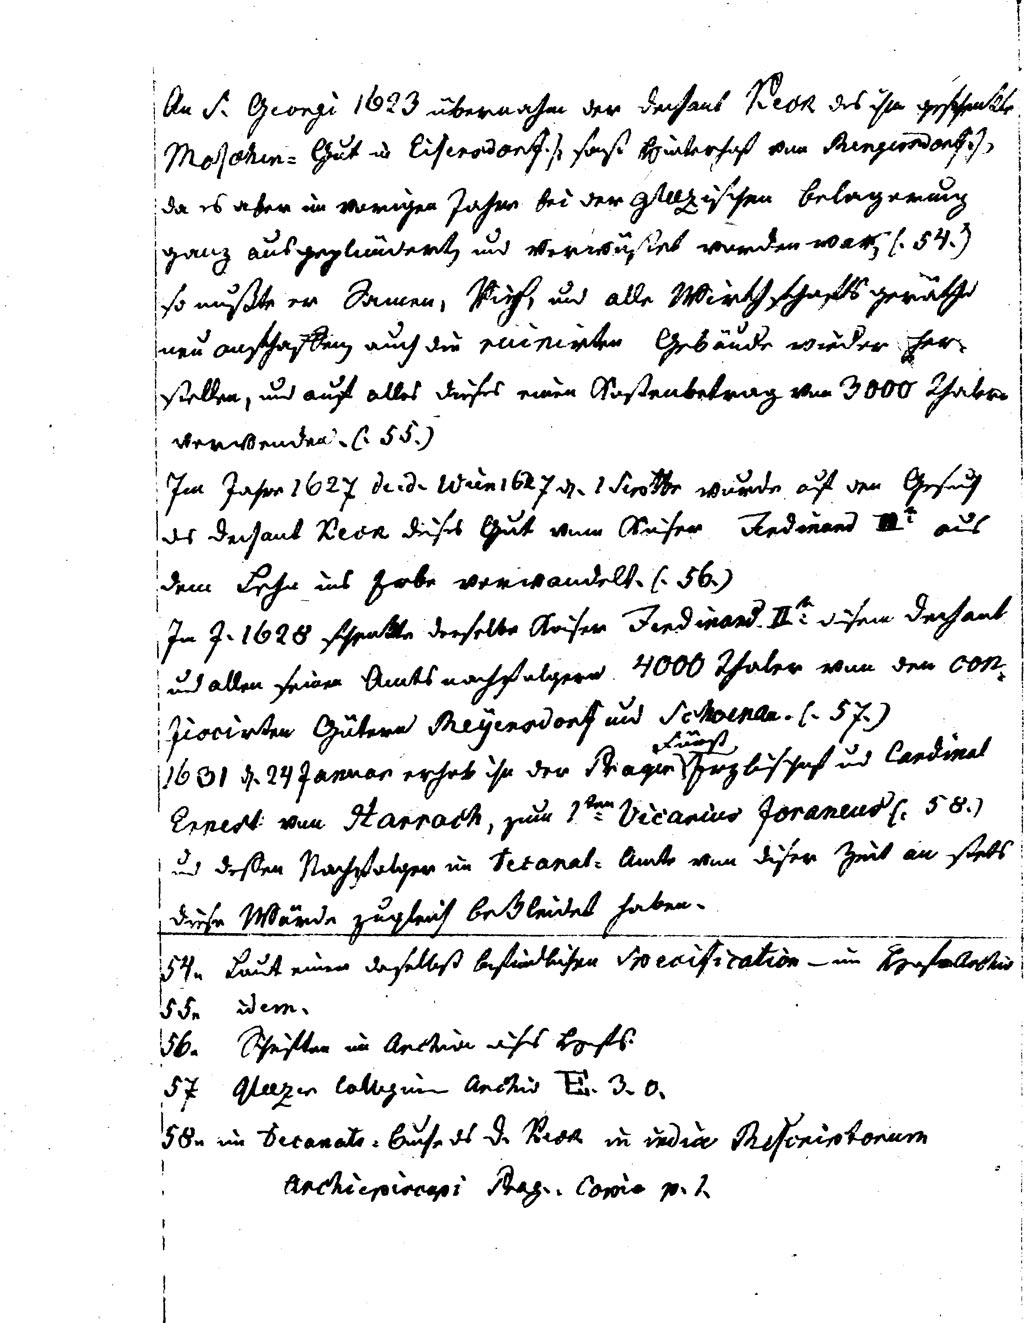 An S. Georgi 1623 übernahm der Dechant Keck das ihm geschenkte
Moschen= Gut in Eisersdorf :/: sonst Hinterhof von Rengersdorf :/:,
da es aber im vorigen Jahre bei der Glatzischen Belagerung
ganz ausgeplündert, und verwüstet worden war, (. 54.)
so mußte er Samen, Vieh, und alle Wirthschaftsgeräthe
neu anschaffen, auch die ruinirten Gebäude wieder her-
stellen, und auf alles dieses einen Kostenbetrag von 3000 Thaler
verwenden. (. 55.)
Im Jahre 1627 de. d. Wien 1627 d. 1 wurde auf den Gesuch
des Dechant Keck dieses Gut vom Kaiser Ferdinand II: aus
dem Lehn ins Erbe verwandelt. (. 56.)
Im J. 1628 schenkte derselbe Kaiser Ferdinand II: diesem Dechant
und allen seinen Amtsnachfolgern 4000 Thaler von den con-
fiscirten Gütern Reyersdorf und Schoenau. (. 57.)
1631 d. 24 Januar erhob ihn der Prager Fürst Erzbischof und Cardinal
Ernest von Harrach, zum 1ten Vicarius foraneus (. 58.)
und dessen Nachfolger im Decanat= Amte von dieser Zeit an stets
diese Würde zugleich bekleidet haben.
54. Laut einer daselbst befindlichen Specification – im Archiv
55. idem.
56. Schriften im Archiv dieses Hofs.
57 Glatzer Collegium Archiv E. 3. o.
58. im Decanats= Buche des D. Keck in indice Rescriptorum
Archiepiscopi Prag.. Copia p. 1.